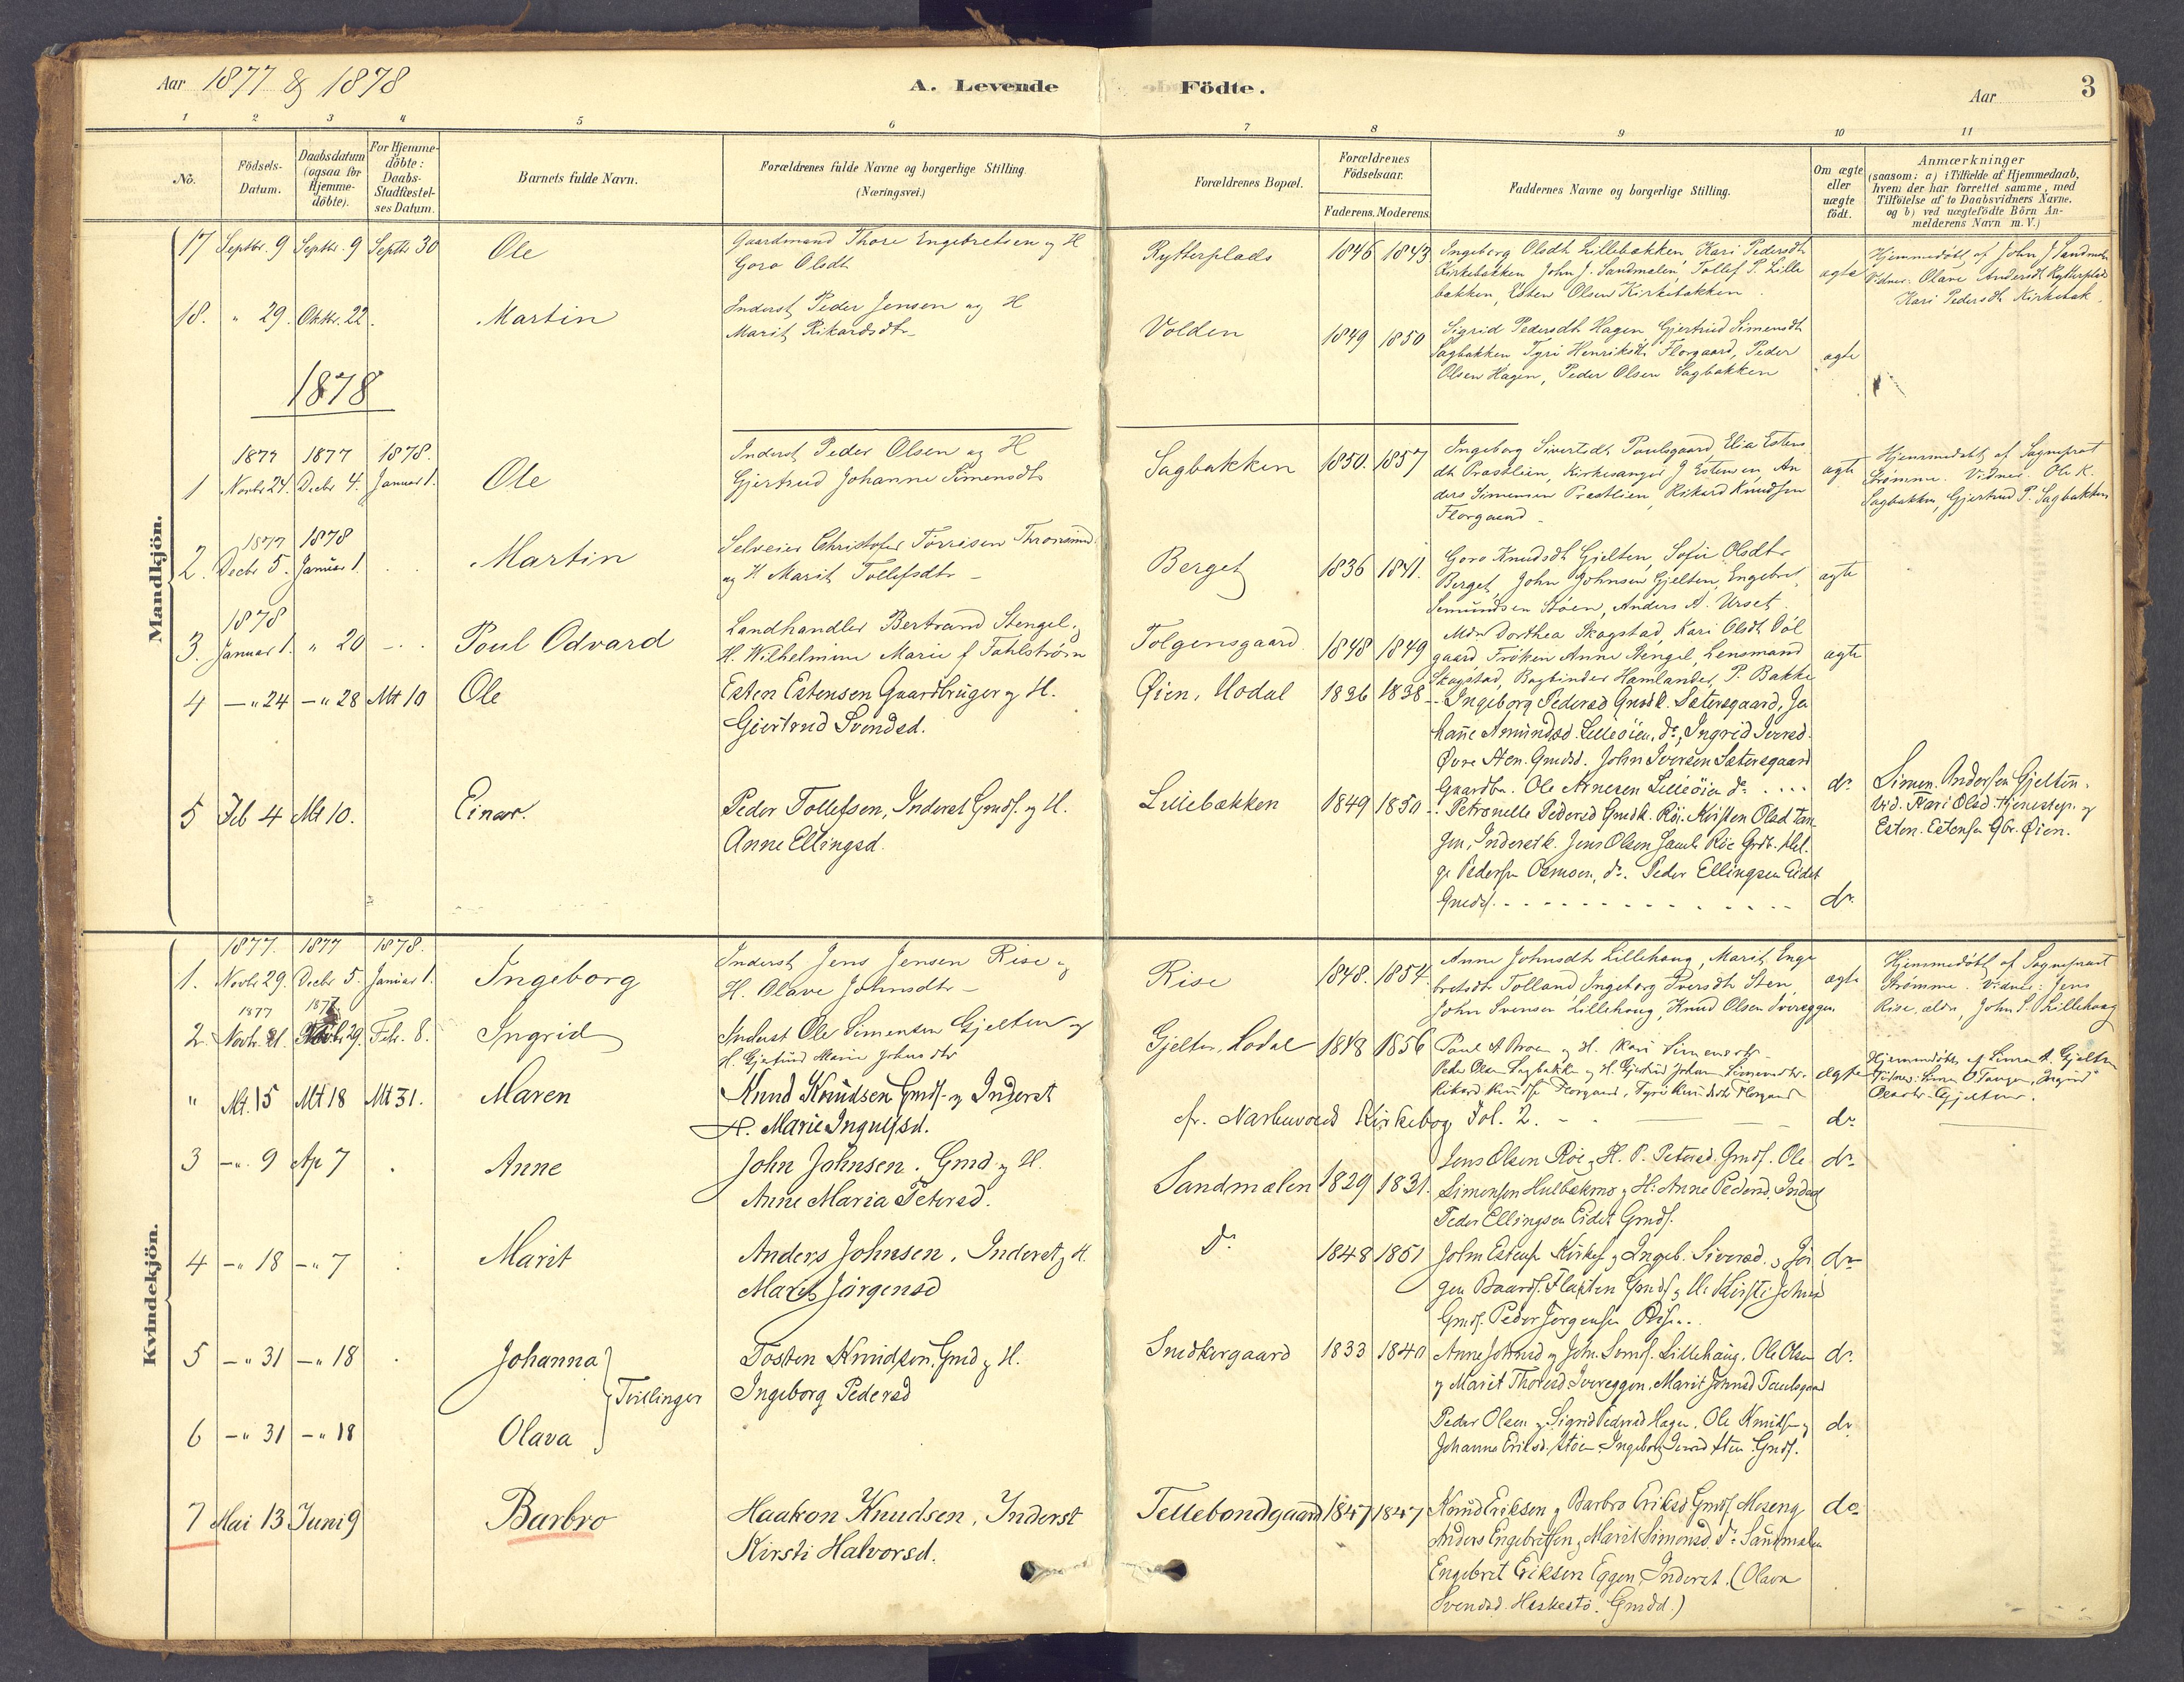 Aar 1877 & 1878
A. Levende Födte.
Aar
3
1 2 3 4 5 6 7 8 9 10 11
No.
Födsels-Datum.
Daabsdatum (ogsaa for Hjemme-döbte).
For Hjemme-döbte: Daabs-Stadfæstel-ses Datum.
Barnets fulde Navn.
Forældrenes fulde Navne og borgerlige Stilling.
(Næringsvei.)
Forældrenes Bopæl.
Forældrenes Födselsaar.
Faderens. Moderens.
Faddernes Navne og borgerlige Stilling.
Om ægte eller uægte födt.
Anmærkninger
(saasom: a) i Tilfælde af Hjemmedaab,
hvem der har forrettet samme, med
Tilföielse af to Daabsvidners Navne.
og b) ved uægtefödte Börn An-
melderens Navn m. V.)
Mandkjön.
17 Septbr. 9 Septbr. 9 Septbr 30 Ole
Gaardmand Thore Engebretsen og H
Goro Olsdtr
Rytterplads 1846 1843
Ingeborg Olsdtr Lillebakken, Kari Pedersdtr
Kirkebakken John J. Sandmælen, Tollef P. Lille
bakken, Esten Olsen Kirkebakken
ægte
Hjemmedøbt af John J Sandmæl
Vidner: Olave Andersdtr Rytterplads
Kari Pedersdtr Kirkebak.
18. " 29. Oktbr. 22. Martin
Inderst Peder Jensen og H
Marit Rikardsdtr
Volden 1849 1850
Sigrid Pedersdtr Hagen, Gjertrud Simensdtr
Sagbakken Tyri Henriksdtr Florgaard, Peder
Olsen Hagen, Peder Olsen Sagbakken
ægte
1878
1877 1877 1878.
1 Novbr 24. Decbr 4. Januar 1. Ole
Inderst Peder Olsen og H
Gjertrud Johanne Simensdtr
Sagbakken 1850. 1857
Ingeborg Sivertsdtr Poulsgaard, Elia Estens
dtr Præstlien, Kirkesanger J Estensen An
ders Simensen Præstlien, Rikard Knudsen
Florgaard
ægte
Hjemmedøbt af Sognepræst
Strømme. Vidner: Ole K.
Sagbakken, Gjertrud P. Sagbakken
1877 1878
2. Decbr 5. Januar 1. Martin
Selveier Christofer Torrisen Thronsmd
og H Marit Tollefsdtr
Berget 1836 1841.
Goro Knudsdtr Gjelten, Sofie Olsdtr
Berget, John Johnsen Gjelten, Engebret
Semundsen Støen, Anders A. Urset
ægte
1878
3. Januar 1. " 20 Poul Odvard
Landhandler Bertrand Stengel og
H. Wilhelmine Marie f Tahlstrøm
Tolgensgaard 1848 1849
Mdm Dorthea Skogstad, Kari Olsdtr Vol
gaard Frøken Anna Stengel, Lensmand
Skogstad, Bogbinder Hamlander, P. Bakke
ægte
4 — " 24 — " 28 Mt 10 Ole
Esten Estensen Gaardbruger og H.
Gjertrud Svendsd.
Øien, Hodal 1836 1838
Ingeborg Pedersd Gmdk. Sætersgaard, Jo
hanne Amundsd. Lilleöien, do, Ingrid Iversd.
Øvre Sten. Gmdsd. John Iversen Sætersgaard
Gaardbr. Ole Arnesen Lilleöien do . . . . do
Simen Andersen Gjelten.
Vid. Kari Olsd. Tjenestep. og
Esten Estensen Gbr. Øien.
5 Feb 4 Mt 10. Einar.
Peder Tollefsen, Inderst Gmds. og H.
Anne Ellingsd.
Lillebakken 1849 1850
Petronelle Pedersd Gmdk. Røe. Kirsten Olsd Tan
gen, Inderstk. Jens Olsen Røe Grdb. Hel
ge Pedersen Osmoen, do. Peder Ellingsen Eidet
Gmds. . . . do
Kvindekjön.
1877. 1877 1878.
1. Novbr 29. Decbr 5. Januar 1. Ingeborg
Inderst Jens Jensen Rise og
H. Olave Johnsdtr
Rise 1848. 1854
Anne Johnsdtr Lillehaug, Marit Enge
bretsdtr Tolland Ingeborg Iversdtr Sten,
John Svensen Lillehaug, Knud Olsen Ivereggen
ægte
Hjemmedøbt af Sognepræst
Strømme. Vidner: Jens
Rise, ældre, John S. Lillehaug
1877 1877
2. Novbr. 21. 29. Febr. 8. Ingrid
Inderst Ole Simensen Gjelten og
H. Gjertrud Marie Johnsdtr
Gjelten, Hodal 1848 1856
Paul A Moen og H. Kari Simensdtr
Peder Olsen Sagbakken og H. Gjertrud Johanne Simensdtr.
Rikard Knudsen Florgaard, Tyri Henriksdtr Florgaard
ægte
Hjemmedøbt af Simen A. Gjelten
Vidner: Simen O Tangen, Ingrid
Olsdtr Gjelten.
" Mt. 15 Mt 18 Mt 31. Maren
Knud Knudsen Gmds. og Inderst
H. Marie Ingulfsd.
fr. Narbuvoll Kirkebog Fol. 2. — do
3 — " 9 Ap 7 Anne
John Johnsen. Gmd. og H.
Anne Maria Petersd.
Sandmælen 1829 1831.
Jens Olsen Røe og H. P. Petersd. Gmds. Ole
Simensen Hulbakmo og H. Anne Pedersd. Inderst
Peder Ellingsen Eidet Gmds.
do
4 — " 18 — " 7 Marit
Anders Johnsen. Inderst og H.
Marit Jörgensd
do 1848 1851
John Estens. Kirkes. og Ingeb. Siversd. og Jör
gen Baards. Flaksten Gmds og H. Kirsti Johnsd
Gmds. Peder Jörgensen
do
5 — " 31 — " 18 Johanna
Tvillinger
Tosten Knudsen. Gmd og H.
Ingeborg Pedersd
Snedkergaard 1833 1840
Anne Johnsd og John Svends. Lillehaug. Ole Olsen
og Marit Thoresd Ivereggen. Marit Johnsd Paulsgaard
do
6 — " 31 — " 18 Olava
Peder Olsen og Sigrid Pedersd Hagen. Ole Knudsen og
Johanne Eriksd. Støen. Ingeborg Iversd Sten. Gmds.
do
7 Mai 13 Juni 9 Barbro
Haakon Knudsen, Inderst
Kirsti Halvorsd.
Tellebondgaard 1847 1847
Knud Eriksen og Barbro Eriksd Gmds Moseng
Anders Engebretsen og Marit Simensd. do Sandmælen
Engebret Eriksen Eggen, Inderst. (Olava
Svendsd. Gmdd.)
do